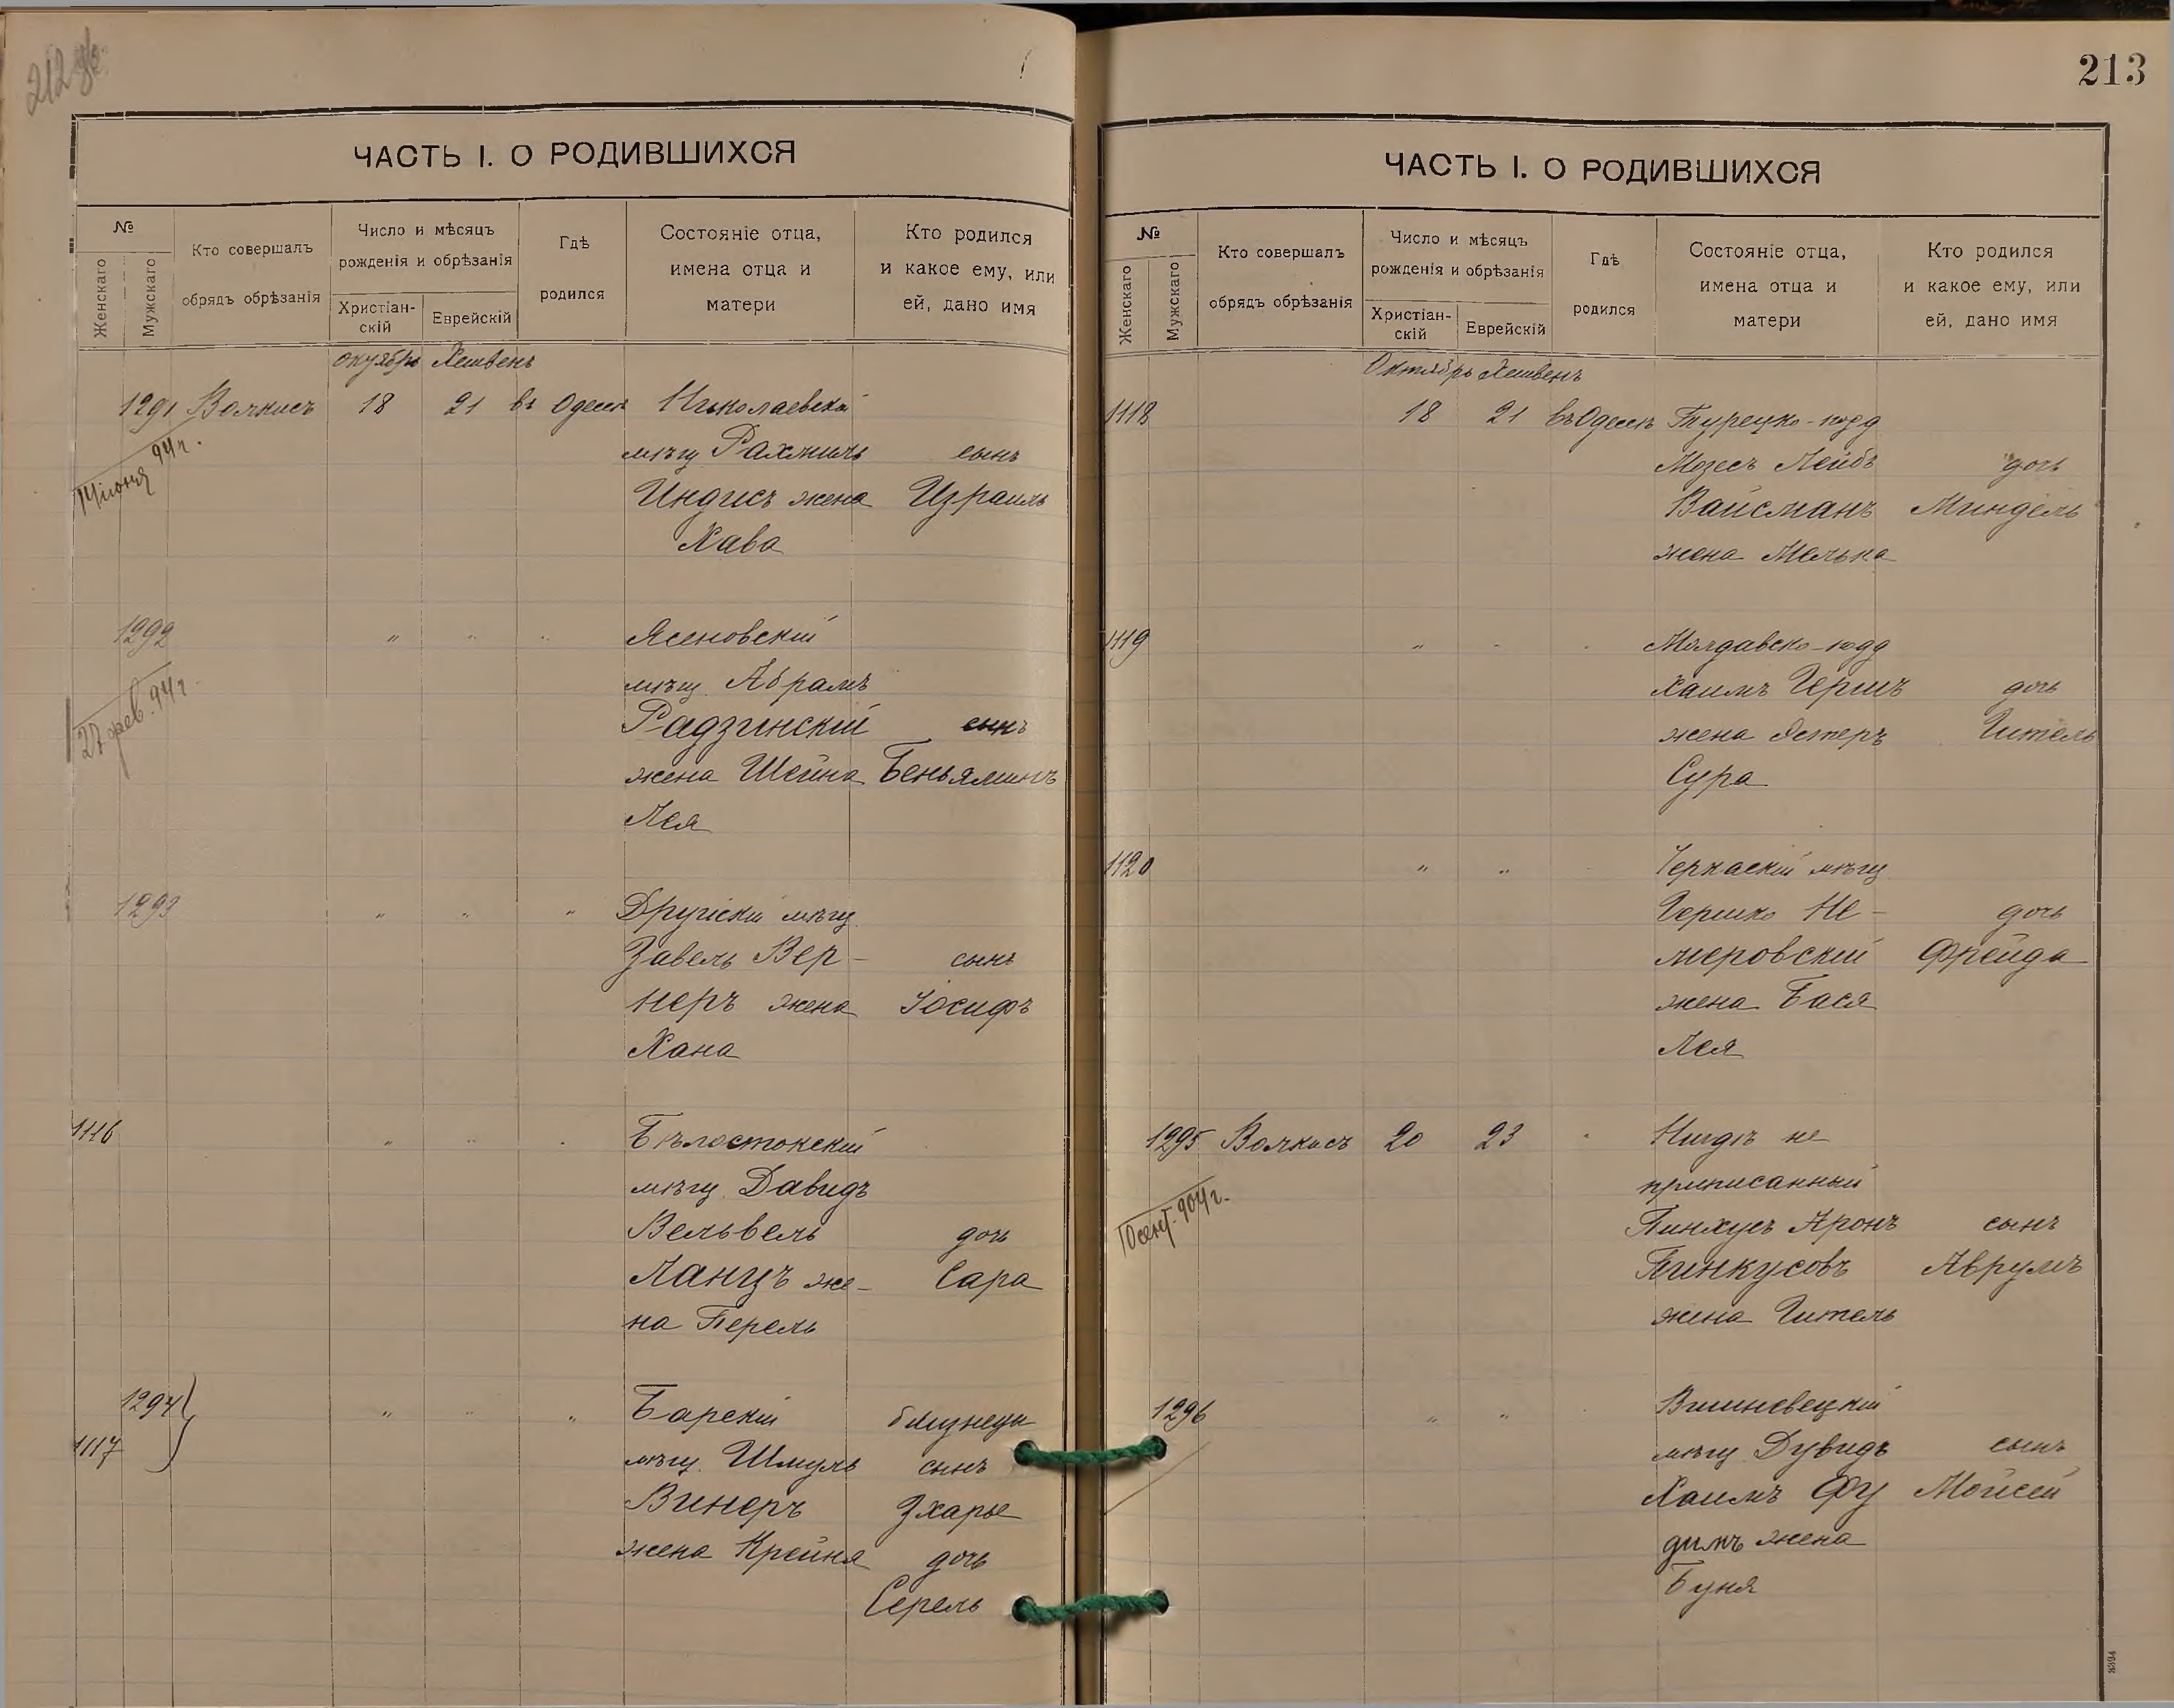 212 об.
ЧАСТЬ I. О РОДИВШИХСЯ
№
Женскаго
Мужскаго
Кто совершалъ
обрядъ обрѣзанія
Число и мѣсяцъ
рожденія и обрѣзанія
Христіан-
скій
Еврейскій
Гдѣ
родился
Состояніе отца,
имена отца и
матери
Кто родился
и какое ему, или
ей, дано имя
октябрь Хешвенъ
1291 Волкисъ 18 21 въ Одессѣ Николаевскій
14 іюня 94 г.
мѣщ Рахмиль сынъ
Индисъ жена Израиль
Хава
1292 " " " Ясеновскій
27 фев. 94 г.
мѣщ. Абрамъ
Радзинскій сынъ
жена Шейна Беньяминъ
Лея
1293 " " " Друйскій мѣщ.
Завель Вер- сынъ
неръ жена Іосифъ
Хана
1116 " " " Бѣлостокскій
мѣщ. Давидъ
Вельвель дочь
Ланцъ же- Сара
на Перель
1294 " " " Барскій близнецы
1117
мѣщ. Шмуль сынъ
Винеръ Зхарье
жена Крейня дочь
Серель
213
ЧАСТЬ I. О РОДИВШИХСЯ
№
Женскаго
Мужскаго
Кто совершалъ
обрядъ обрѣзанія
Число и мѣсяцъ
рожденія и обрѣзанія
Христіан-
скій
Еврейскій
Гдѣ
родился
Состояніе отца,
имена отца и
матери
Кто родился
и какое ему, или
ей, дано имя
Октябрь Хешвенъ
1118 18 21 въ Одессѣ Турецко-подд
Мозесъ Лейбъ дочь
Вайсманъ Миндель
жена Мелька
1119 " " " Молдавско-подд
Хаимъ Гершъ дочь
жена Эстеръ Гитель
Сура
1120 " " Черкаскій мѣщ
Гершко Не- дочь
меровскій Фрейда
жена Бася
Лея
1295 Волкисъ 20 23 " Нигдѣ не
10 сент. 904 г.
приписанный
Пинхусъ Аронъ сынъ
Пинкусовъ Аврумъ
жена Гитель
1296 " " " Вишневецкій
мѣщ Дувидъ сынъ
Хаимъ Фу Мойсей
димъ жена
Буня